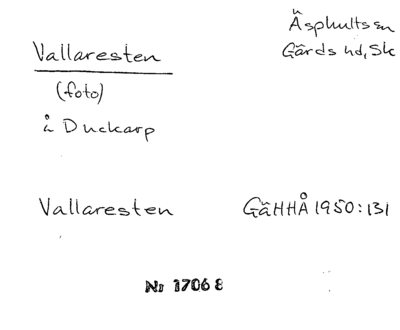 Äsphults sn
Gärds hd, Sk
Vallaresten
(foto)
i Duckarp
Vallaresten GäHHÅ 1950:131
Nr 17068